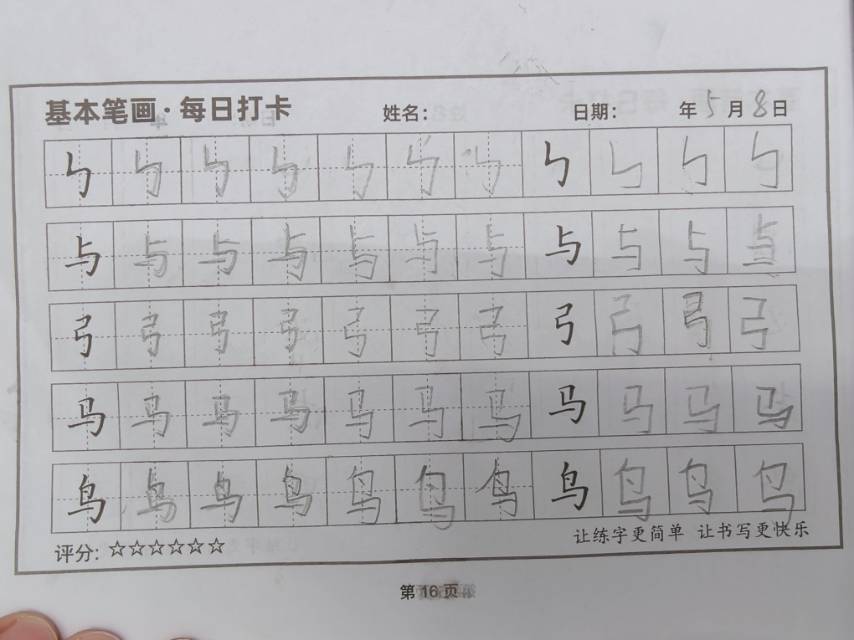 基本笔画·每日打卡 姓名: 日期: 年5月8日
ㄣ ㄣ ㄣ ㄣ ㄣ ㄣ ㄣ ㄣ ㄣ ㄣ ㄣ
与 与 与 与 与 与 与 与 与 与 与
弓 弓 弓 弓 弓 弓 弓 弓 弓 弓 弓
马 马 马 马 马 马 马 马 马 马 马
鸟 鸟 鸟 鸟 鸟 鸟 鸟 鸟 鸟 鸟 鸟
评分: ☆☆☆☆☆☆ 让练字更简单 让书写更快乐
第 16 页